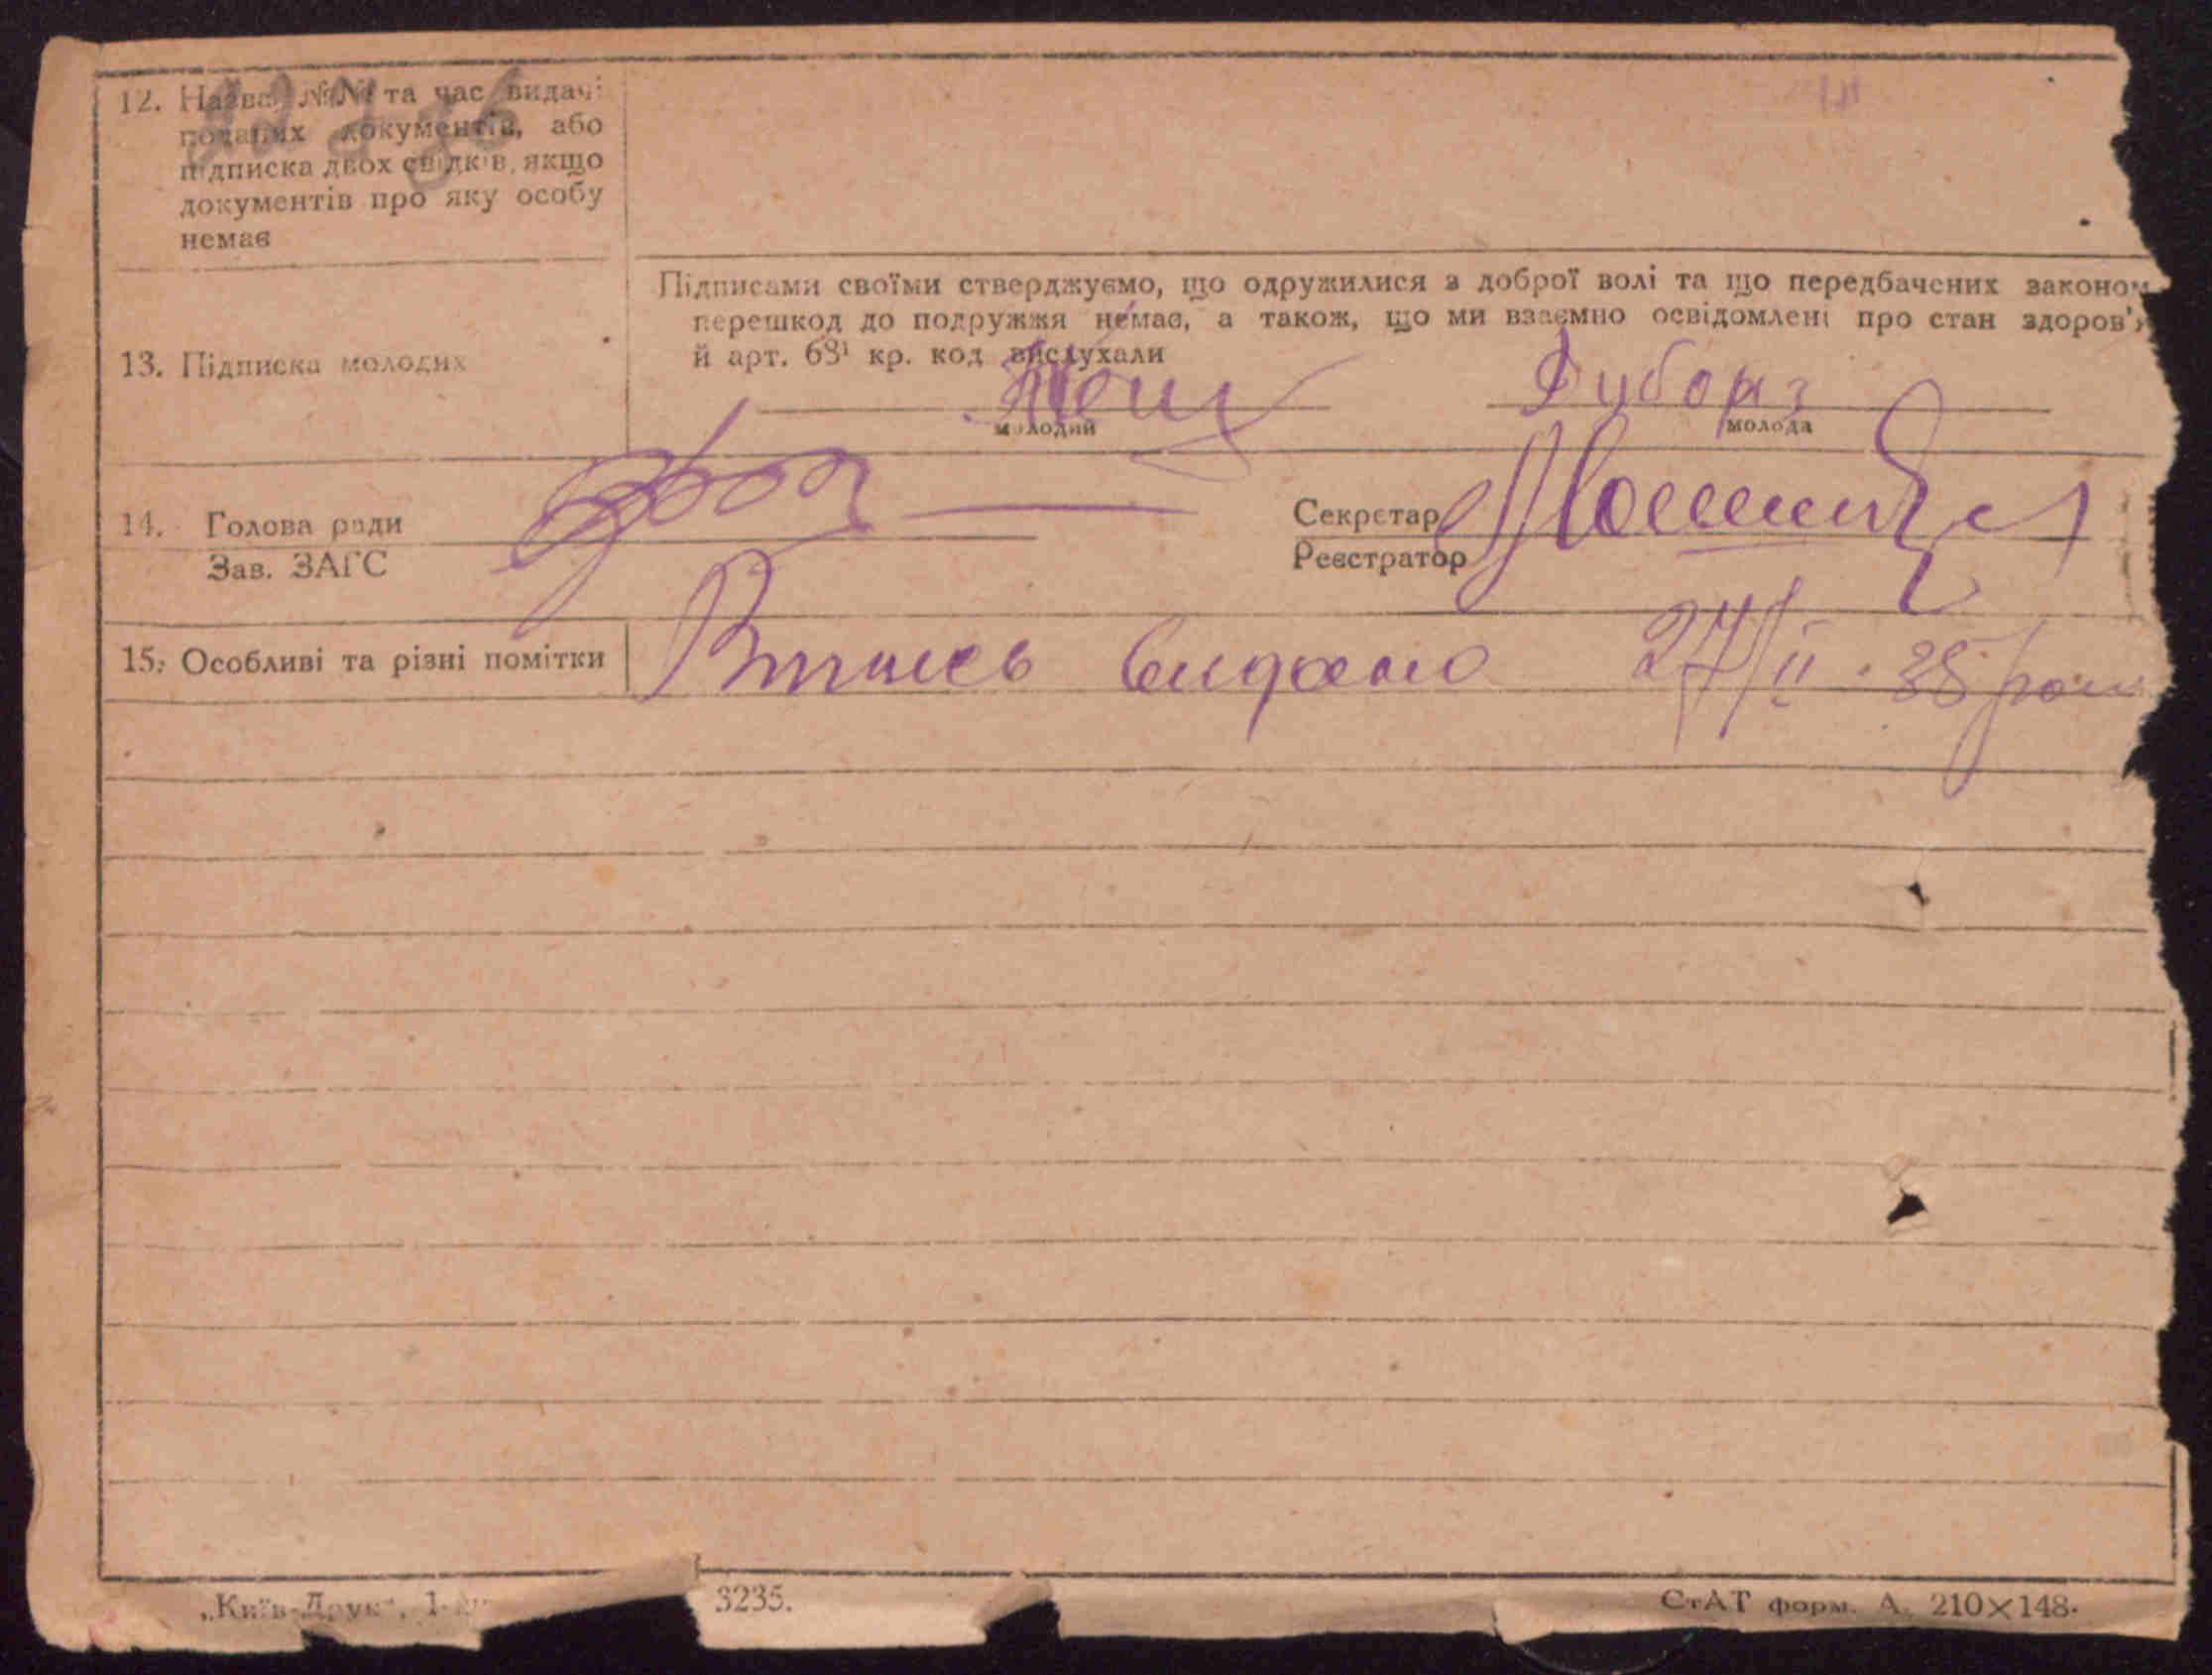 12. Назва, №№ та час видачі
поданих документів, або
підписка двох свідків, якщо
документів про яку особу
немає
Підписами своїми стверджуємо, що одружилися з доброї волі та що передбачених законом
перешкод до подружжя немає, а також, що ми взаємно освідомлені про стан здоров'я
й арт. 68¹ кр. код вислухали
13. Підписка молодих
молодий
молода
14. Голова ради
Секретар
Зав. ЗАГС
Реєстратор
15. Особливі та різні помітки
Витись видано 27/II. 35 року
„Київ-Друк", 1-
3235.
СтАТ форм. А. 210×148.